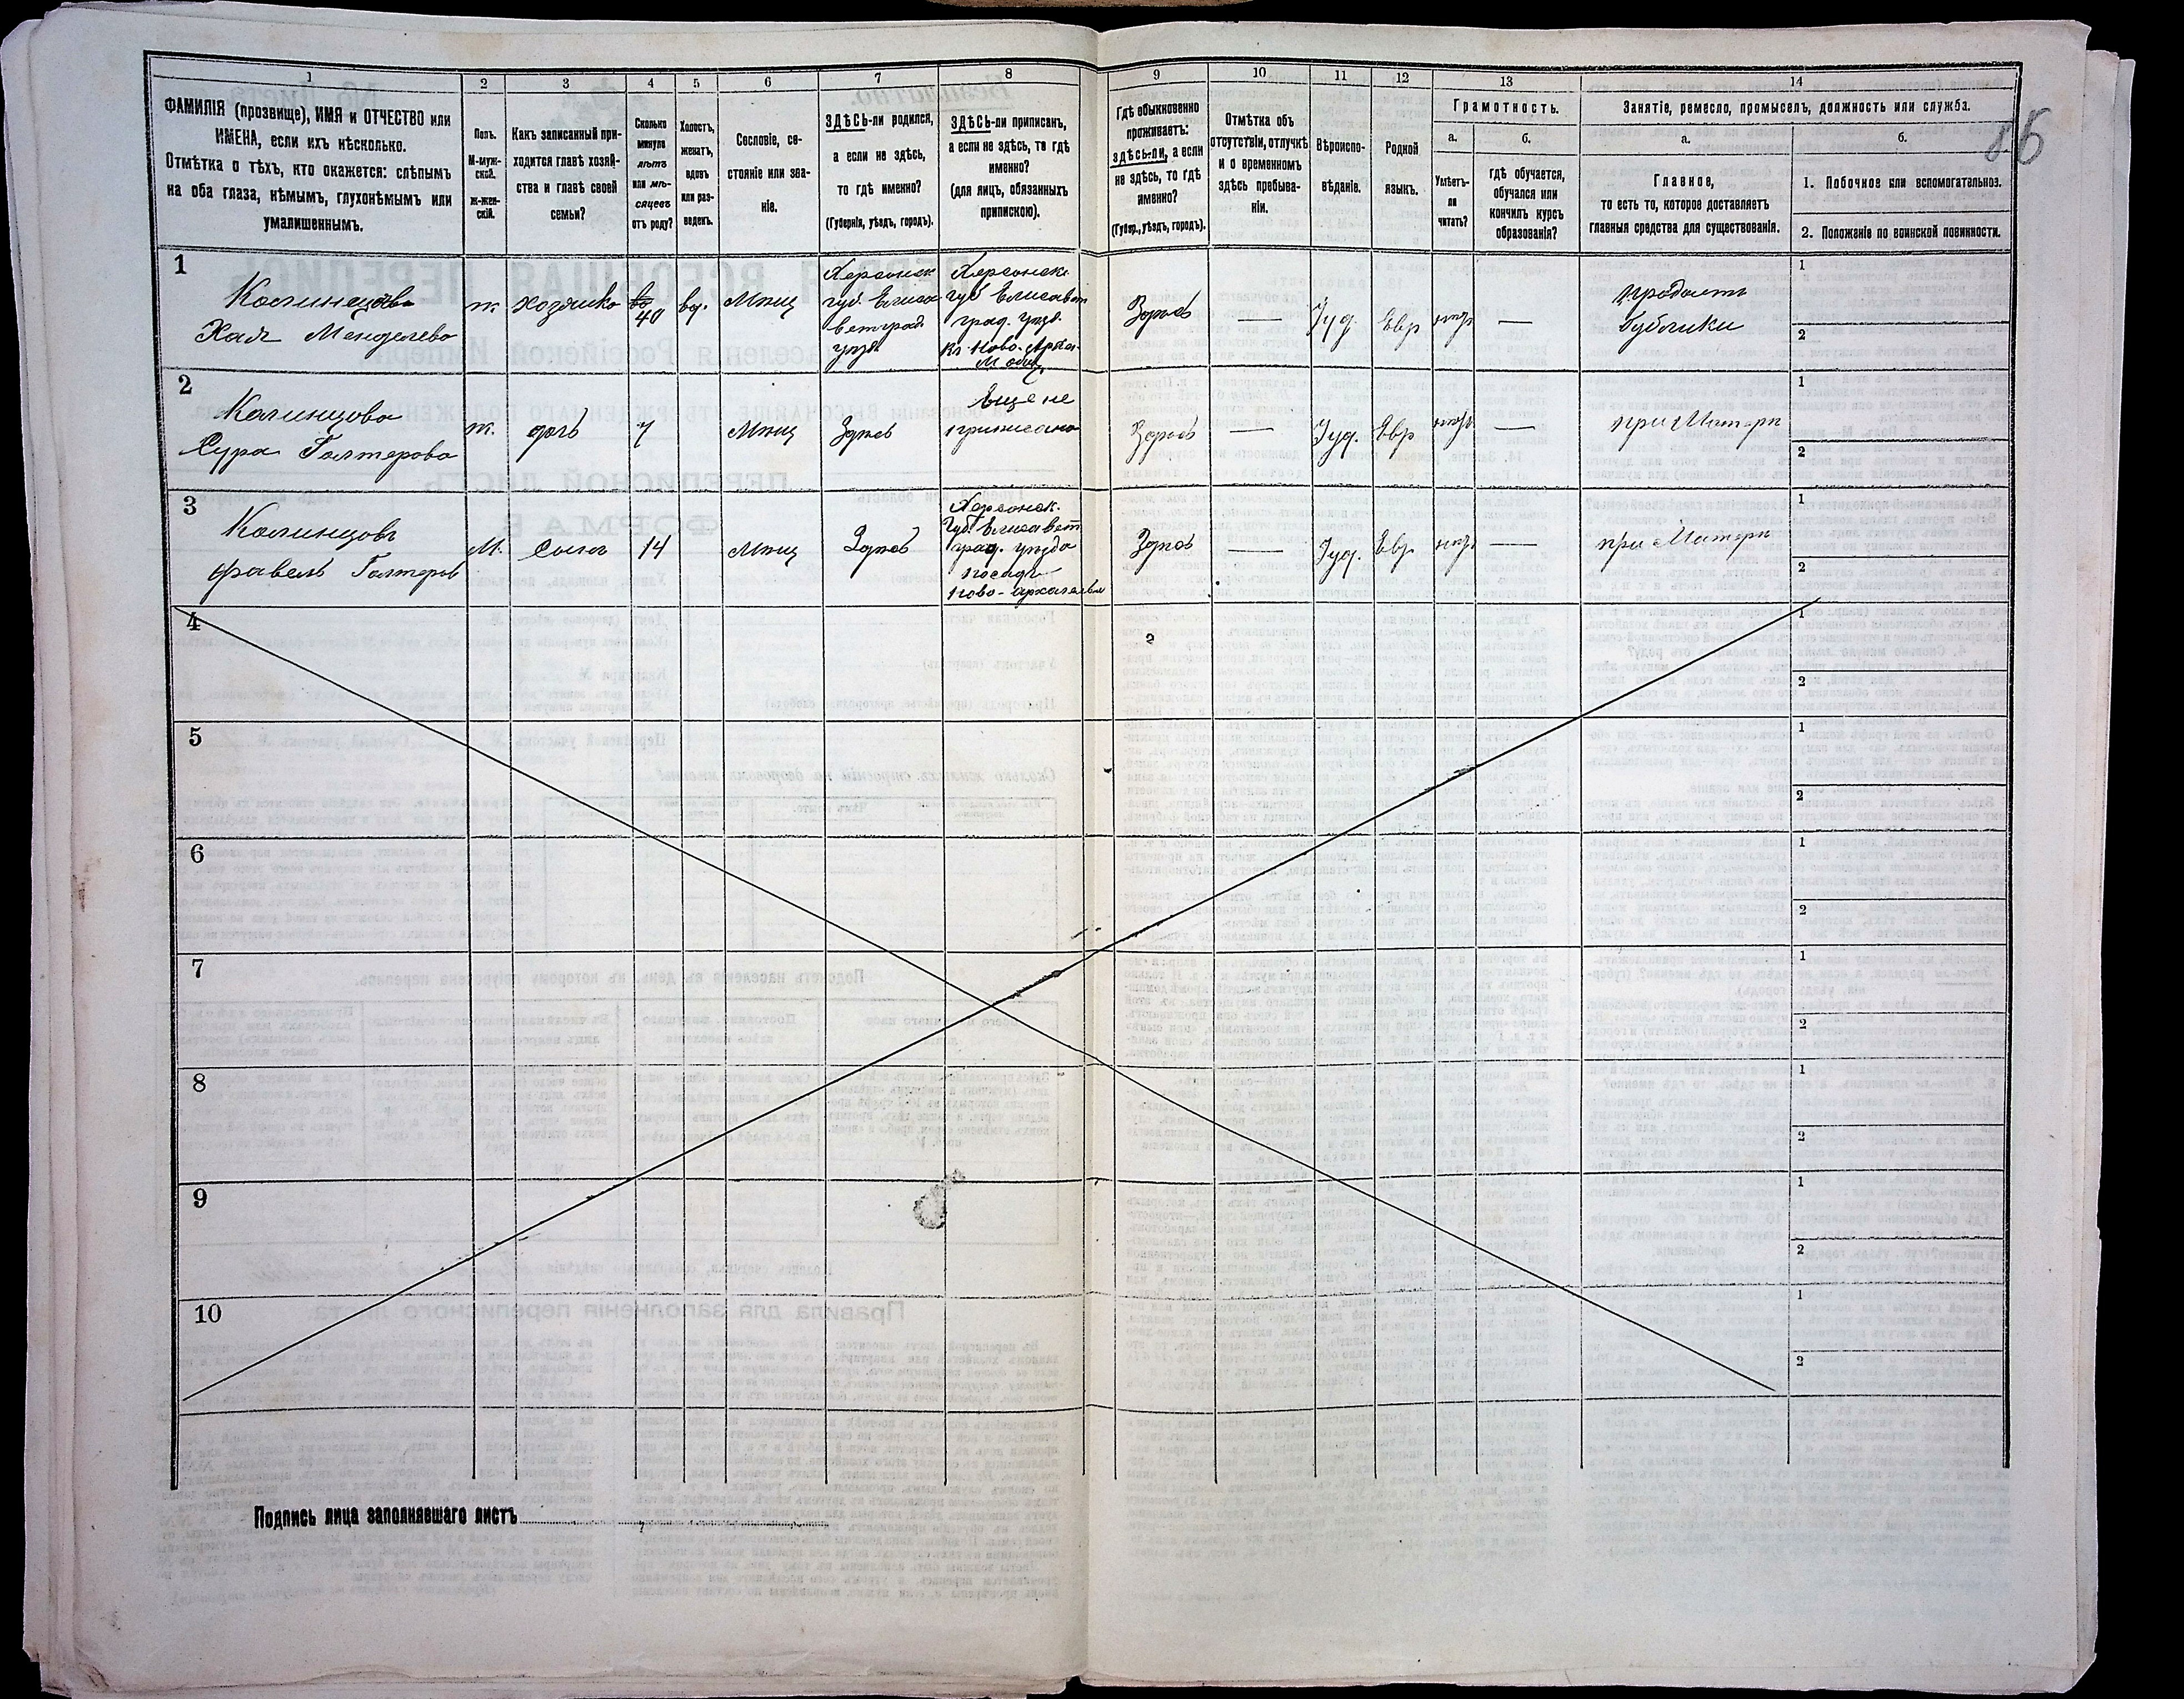 1
2
3
4
5
6
7
8
9
10
11
12
13
14
ФАМИЛІЯ (прозвище), ИМЯ и ОТЧЕСТВО или
ИМЕНА, если ихъ нѣсколько.
Отмѣтка о тѣхъ, кто окажется: слѣпымъ
на оба глаза, нѣмымъ, глухонѣмымъ или
умалишеннымъ.
Полъ.
М-муж-
ской.
ж-жен-
скій.
Какъ записанный при-
ходится главѣ хозяй-
ства и главѣ своей
семьи?
Сколько
минуло
лѣтъ
или мѣ-
сяцевъ
отъ роду?
Холостъ,
женатъ,
вдовъ
или раз-
веденъ.
Сословіе, со-
стояніе или зва-
ніе.
ЗДѢСЬ-ли родился,
а если не здѣсь,
то гдѣ именно?
(Губернія, уѣздъ, городъ).
ЗДѢСЬ-ли приписанъ,
а если не здѣсь, то гдѣ
именно?
(для лицъ, обязанныхъ
припискою).
Гдѣ обыкновенно
проживаетъ:
здѣсь-ли, а если
не здѣсь, то гдѣ
именно?
(Губер., уѣздъ, городъ).
Отмѣтка объ
отсутствіи, отлучкѣ
и о временномъ
здѣсь пребыва-
ніи.
Вѣроиспо-
вѣданіе.
Родной
языкъ.
Грамотность.
а.
б.
Умѣетъ-
ли
читать?
гдѣ обучается,
обучался или
кончилъ курсъ
образованія?
Занятіе, ремесло, промыселъ, должность или служба.
а.
б.
Главное,
то есть то, которое доставляетъ
главныя средства для существованія.
1. Побочное или вспомогательное.
2. Положеніе по воинской повинности.
1
Хая Менделева
ж.
хозяйка
40
вд.
Мѣщ
Херсонск
губ. Елиса
ветград.
уѣзд.
Херсонск.
губ Елисавет
град. уѣзд.
Здѣсь
—
Іуд.
Евр
нѣтъ
—
продаетъ
бублики
1
2
2
Калинцова
Сура Голтерова
ж.
дочь
7
Мѣщ
Здѣсь
Еще не
приписана
Здѣсь
—
Іуд.
Евр
нѣтъ
—
при Матери
1
2
3
Калинцовъ
Голтеровъ
М.
Сынъ
14
Мѣщ
Здѣсь
Херсонск.
Губ. Елисавет
град. уѣзда
посадъ
Ново-Архангельск
Здѣсь
—
Іуд.
Евр
нѣтъ
—
при Матери
1
2
4
1
2
5
1
2
6
1
2
7
1
2
8
1
2
9
1
2
10
1
2
Подпись лица заполнявшаго листъ